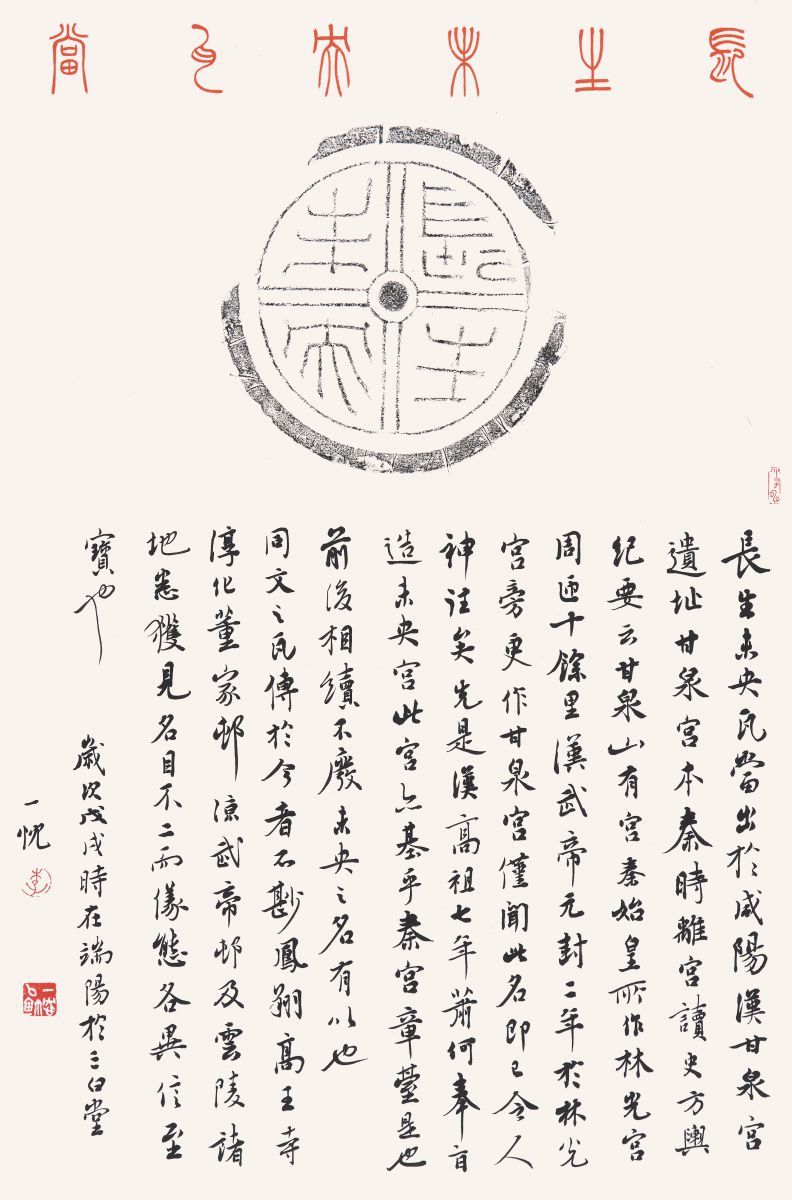 長生未央瓦當
長生未央
長生未央瓦當出於咸陽漢甘泉宮
遺址甘泉宮本秦時離宮讀史方輿
紀要云甘泉山有宮秦始皇所作林光宮
周匝十餘里漢武帝元封二年於林光
宮旁更作甘泉宮僅聞此名即已令人
神注矣先是漢高祖七年蕭何奉旨
造未央宮此宮亦基乎秦宮章臺是也
前後相續不廢未央之名有以也
同文之瓦傳於今者不尠鳳翔高王寺
淳化董家邨涼武帝邨及雲陵諸
地悉獲見名目不二而儀態各異信至
寶也
歲次戊戌時在端陽於三白堂
一忱
李